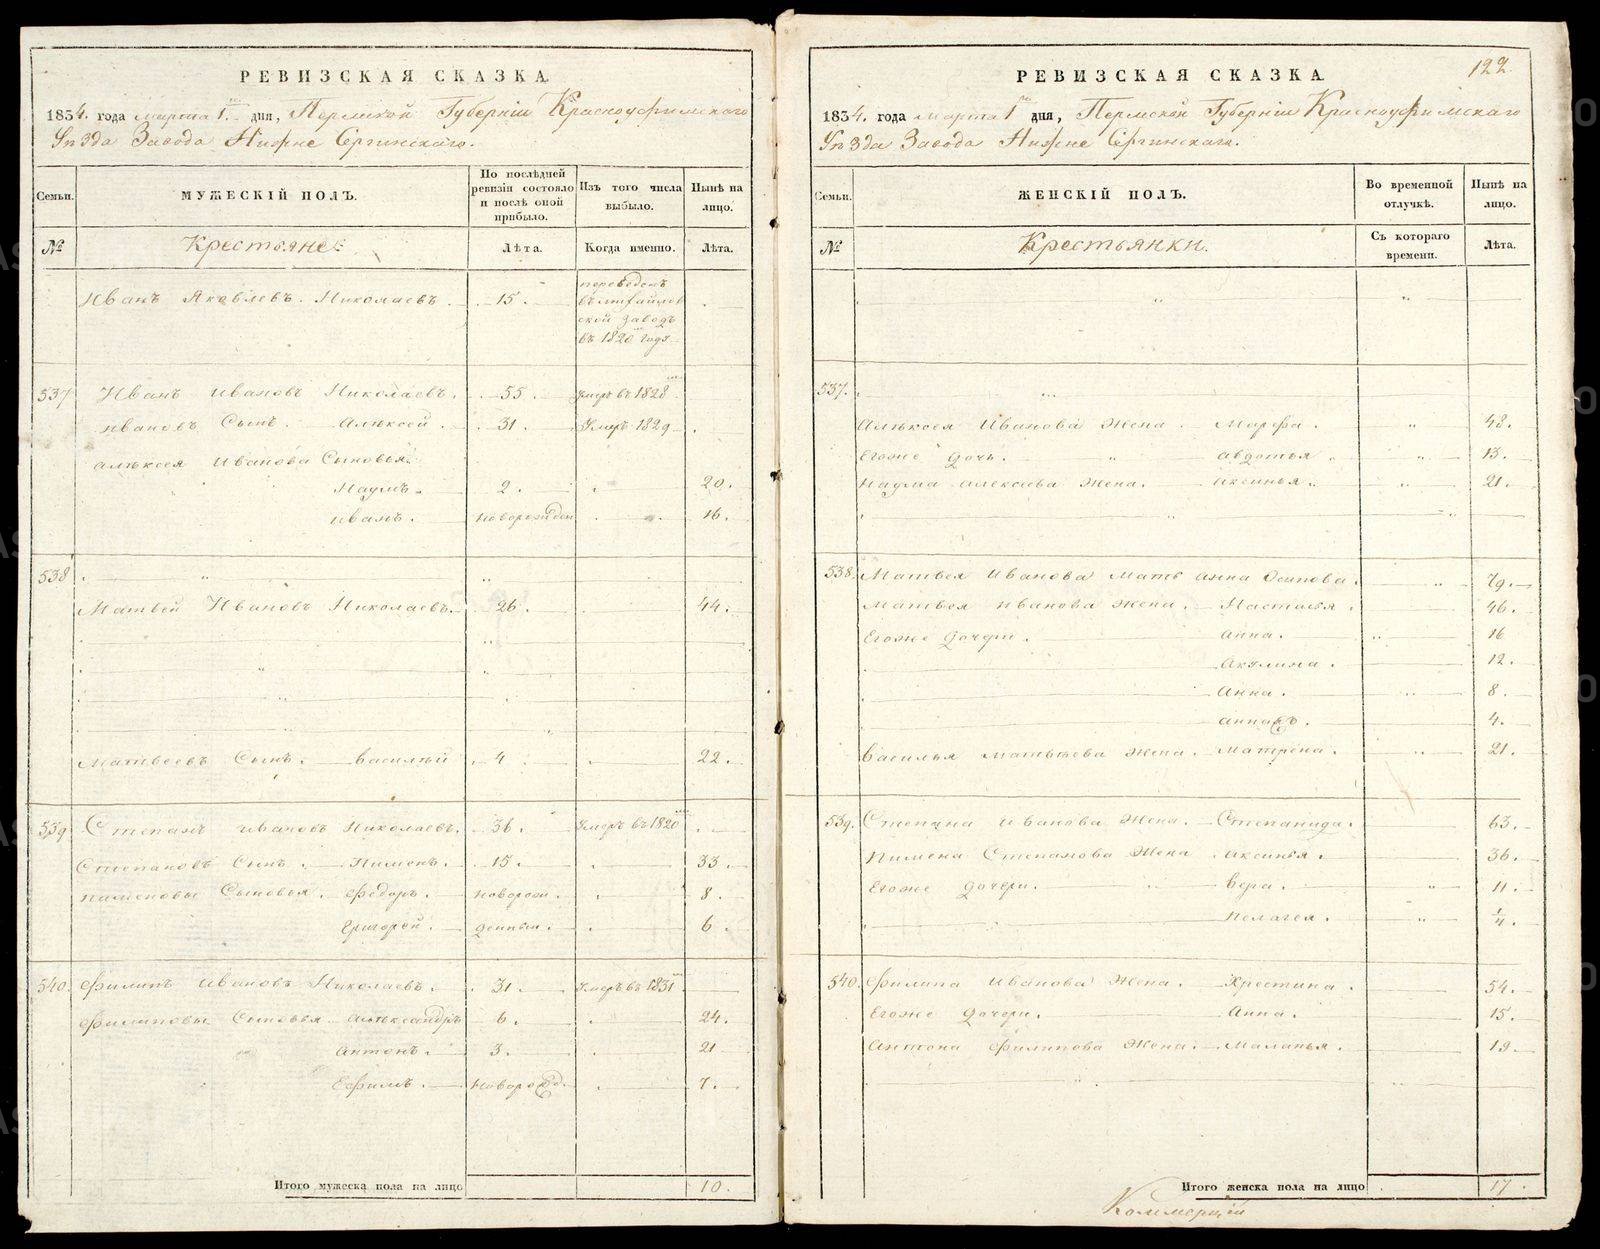 РЕВИЗСКАЯ СКАЗКА.
1834. года марта 1го дня, Пермской Губерніи Красноуфимскаго
Уѣзда Завода Нижне Сергинскаго.
Семьи.
МУЖЕСКІЙ ПОЛЪ.
По послѣдней ревизіи состояло и послѣ оной прибыло.
Изъ того числа выбыло.
Нынѣ на лицо.
№
Крестьяне
Лѣта.
Когда именно.
Лѣта.
Иванъ Яковлевъ. Николаевъ. 15. переведенъ
въ михайлов
ской заводъ
въ 1820 годѣ
537 Иванъ Ивановъ Николаевъ. 55. умеръ въ 1828
ивановъ Сынъ. Алѣксей. 31. Умеръ 1829
алѣксея Иванова Сыновья.
Наумъ. 2. 20.
иванъ. новорожден 16.
538
Матвей Ивановъ Николаевъ. 26. 44.
Матвеевъ Сынъ. василѣй 4. 22.
539 Степанъ ивановъ Николаевъ. 36. Умеръ въ 1820
Степановъ Сынъ. Пименъ. 15. 33.
пименовы Сыновья. Федоръ. новорож. 8.
Григорей. денныи. 6.
540. Филипъ Ивановъ Николаевъ. 31. Умеръ въ 1831
Филиповы Сыновья Алѣксандръ 6. 24.
Антонъ. 3. 21
Ефимъ. Новорожд. 7.
Итого мужеска пола на лицо 10.
122.
РЕВИЗСКАЯ СКАЗКА.
1834. года марта 1го дня, Пермской Губерніи Красноуфимскаго
Уѣзда Завода Нижне Сергинскаго.
Семьи.
ЖЕНСКІЙ ПОЛЪ.
Во временной отлучкѣ.
Нынѣ на лицо.
№
Крестьянки.
Съ котораго времени.
Лѣта.
537.
Алѣксея Иванова жена. Марфа. 48.
Егоже дочь. авдотья 13.
Наума алексѣева жена. аксинья. 21.
538. Матвея Иванова Мать анна Осипова. 79.
Матвея иванова жена. Настасья. 46.
Егоже дочери. анна. 16
акулина. 12.
анна. 8.
4.
василья матвѣева жена. матрена. 21.
539. Степана иванова жена. Степанида. 63.
пимена Степанова жена аксинья. 36.
Егоже дочери. вера. 11.
пелагея. 1/4.
540. Филипа иванова жена. Крестина. 54.
Егоже дочери. анна. 15.
антона филипова жена. маланья. 19.
Итого женска пола на лицо 17.